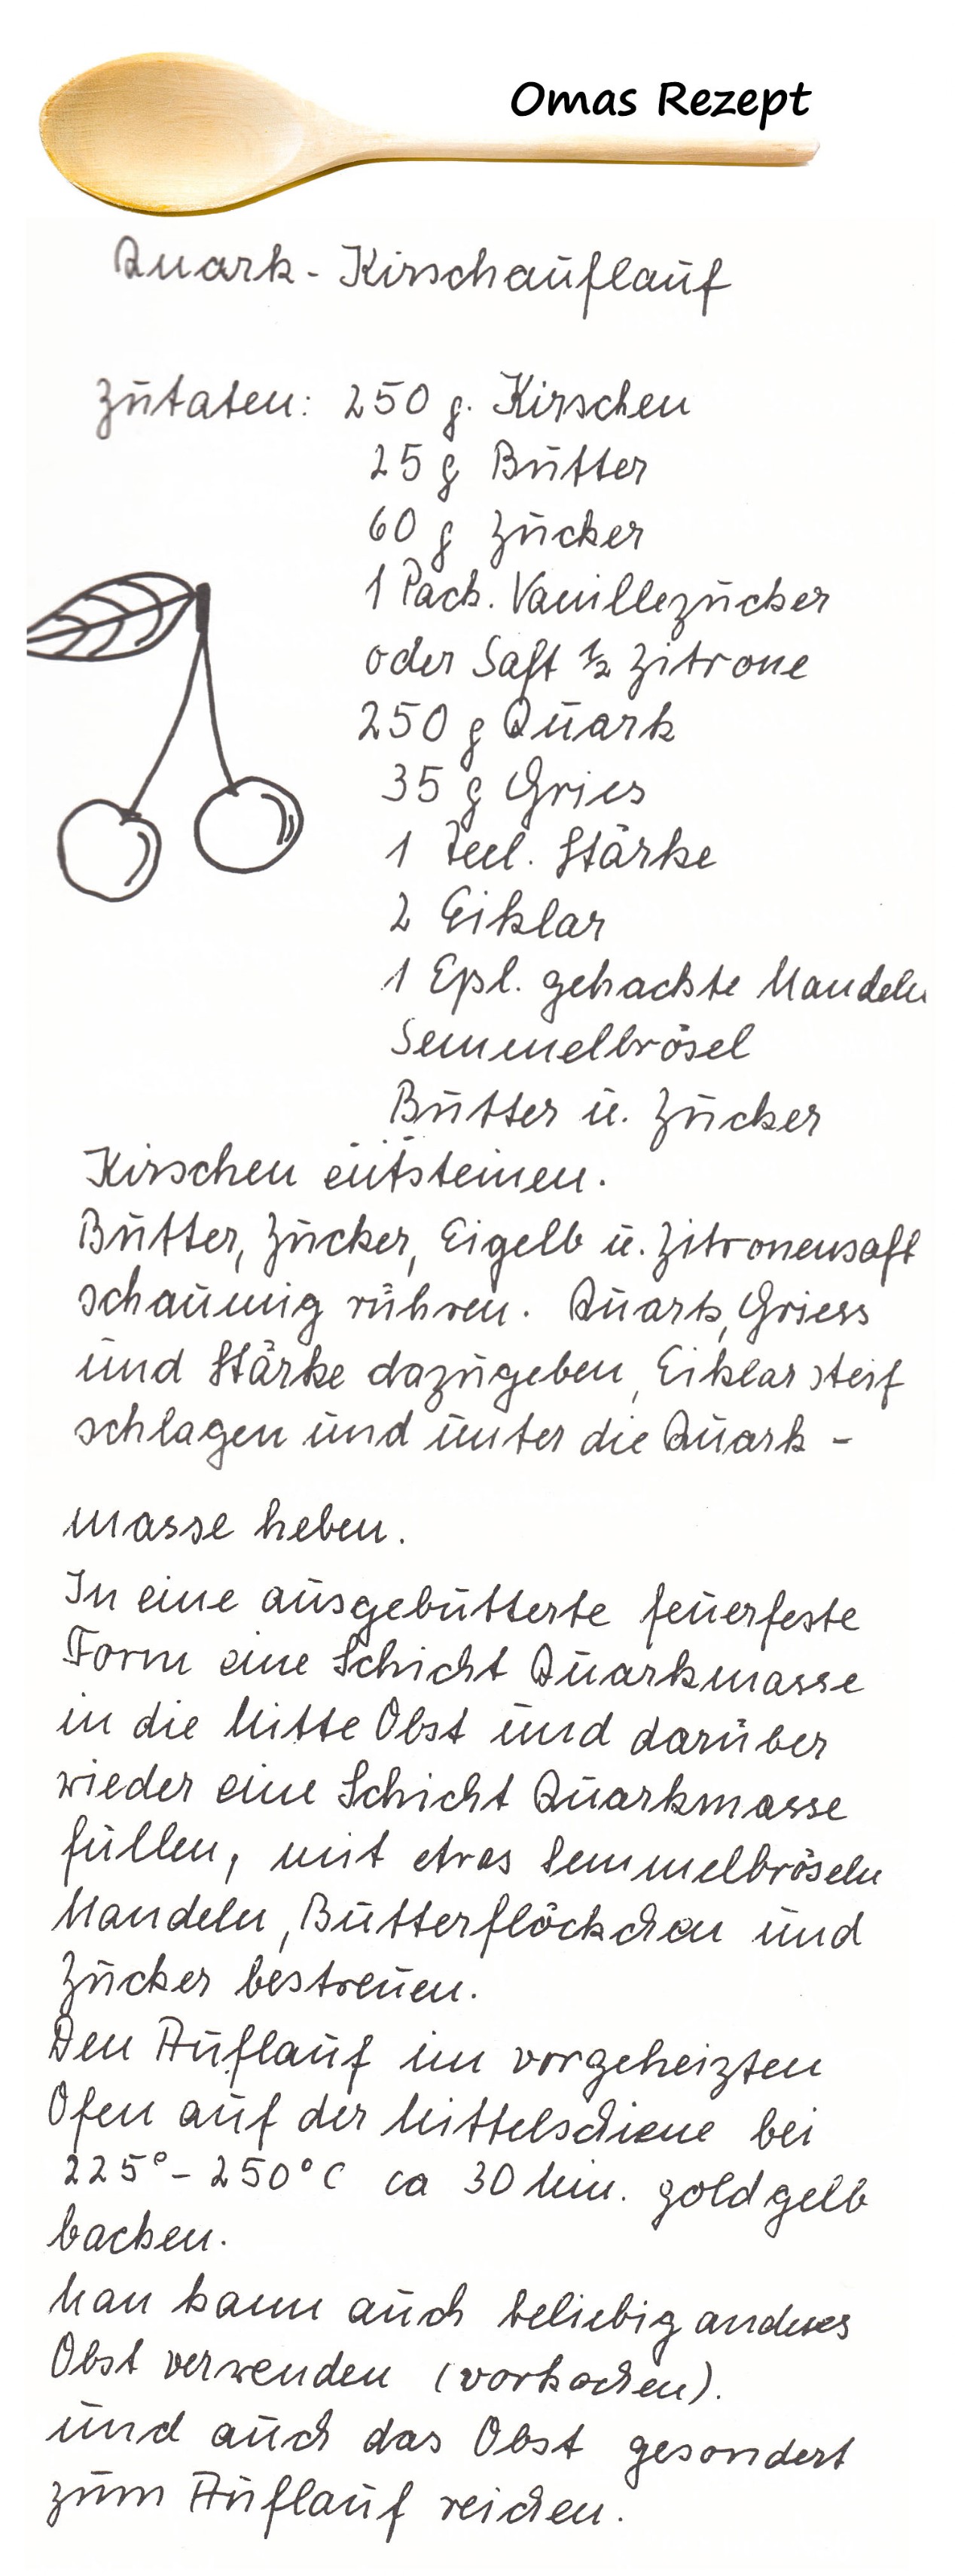 Omas Rezept
Quark-Kirschauflauf
Zutaten: 250 g. Kirschen
25 g Butter
60 g Zucker
1 Pack. Vanillezucker
oder Saft ½ Zitrone
250 g Quark
35 g Gries
1 Teel. Stärke
2 Eiklar
1 Eßl. gehackte Mandeln
Semmelbrösel
Butter u. Zucker
Kirschen entsteinen.
Butter, Zucker, Eigelb u. Zitronensaft
schaumig rühren. Quark, Griess
und Stärke dazugeben, Eiklar steif
schlagen und unter die Quark-
masse heben.
In eine ausgebutterte feuerfeste
Form eine Schicht Quarkmasse
in die Mitte Obst und darüber
wieder eine Schicht Quarkmasse
füllen, mit etwas Semmelbröseln
Mandeln, Butterflöckchen und
Zucker bestreuen.
Den Auflauf im vorgeheizten
Ofen auf der Mittelschiene bei
225°-250°C ca 30 Min. goldgelb
backen.
Man kann auch beliebig anderes
Obst verwenden (vorkochen).
und auch das Obst gesondert
zum Auflauf reichen.